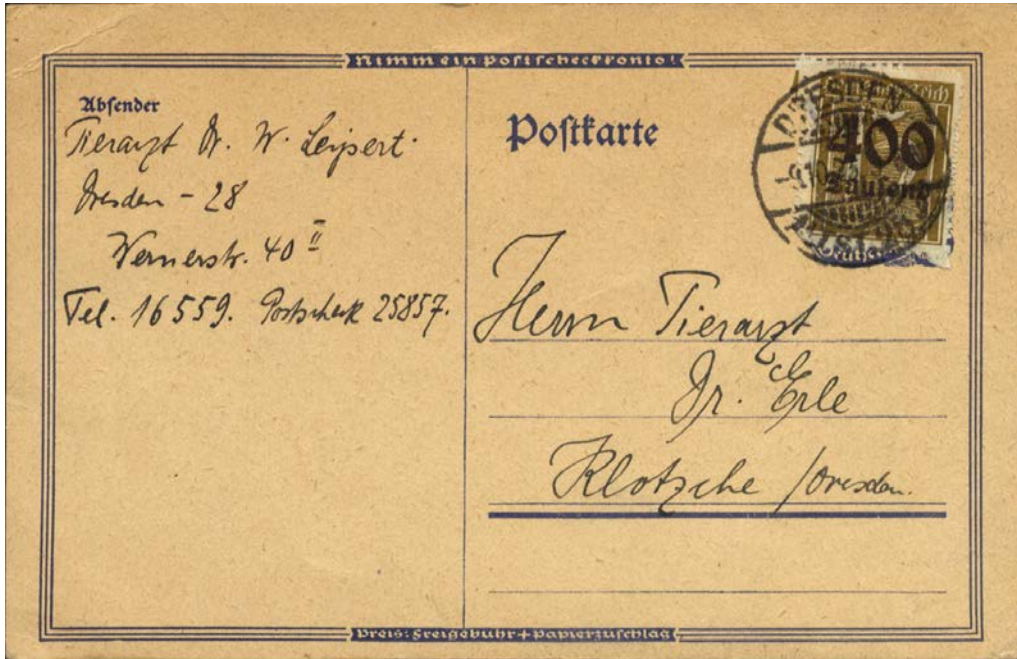 Nimm ein Postscheckkonto!
Absender
Tierarzt Dr. W. Leipert.
Dresden - 28
Wernerstr. 40 II
Tel. 16559. Postscheck 25857.
Postkarte
DRESDEN
Reich
400
Tausend
Herrn Tierarzt
Dr. Erle
Klotzsche /Dresden.
Preis: Freigebühr + Papierzuschlag